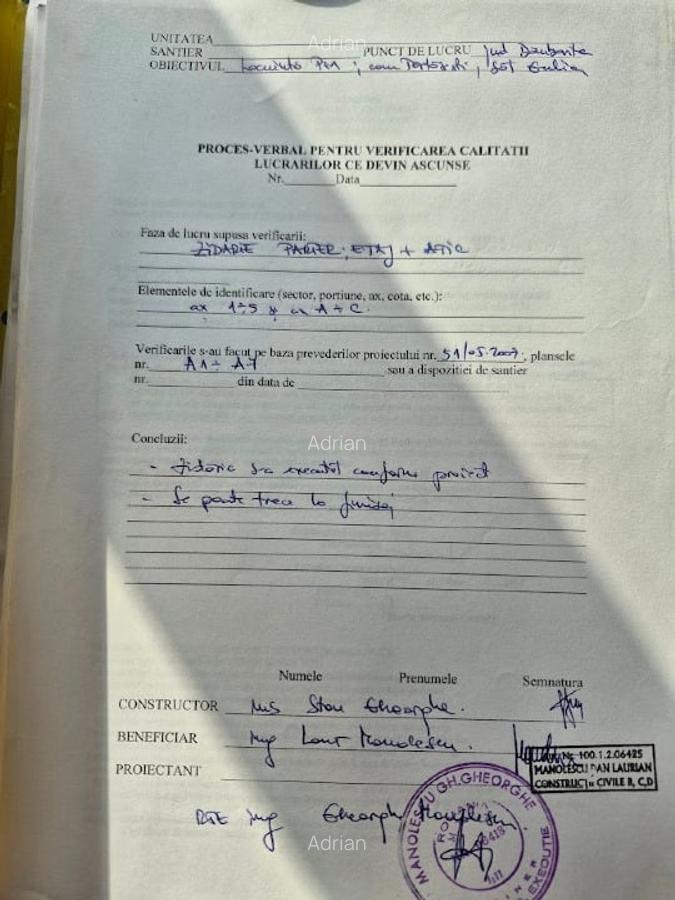 UNITATEA
SANTIER PUNCT DE LUCRU Jud Dambovita
OBIECTIVUL Locuinta P+1; com
Adrian
PROCES-VERBAL PENTRU VERIFICAREA CALITATII
LUCRARILOR CE DEVIN ASCUNSE
Nr. Data
Faza de lucru supusa verificarii:
ZIDARIE PARTER, ETAJ + ATIC
Elementele de identificare (sector, portiune, ax, cota, etc.):
ax 1÷5 ax A÷C
Verificarile s-au facut pe baza prevederilor proiectului nr. 51/05.2007, plansele
nr. A1÷ A7 sau a dispozitiei de santier
nr. din data de
Concluzii:
Adrian
- Zidaria s-a executat conform proiect
- Se poate trece la finisaj
Numele Prenumele Semnatura
CONSTRUCTOR Stan Gheorghe.
BENEFICIAR Ing Manolescu.
Nr. 100.1.2.06425
MANOLESCU DAN LAURIAN
CONSTRUCTII CIVILE B, C, D
PROIECTANT
RTE ing Gheorghe Manolescu
MANOLESCU GH. GHEORGHE
EXECUTIE
Adrian